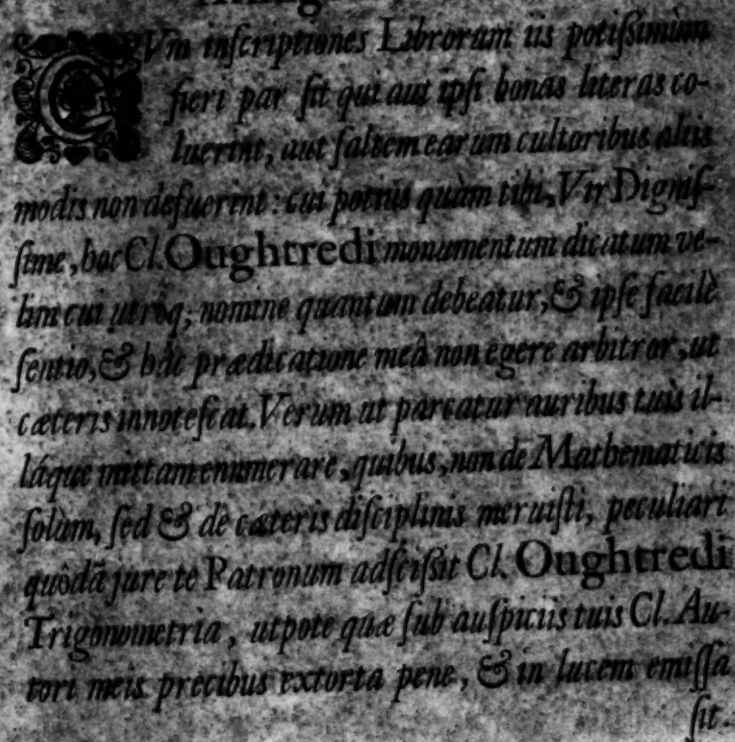 CVm inſcriptiones Librorum iis potiſſimùm
fieri par ſit qui aut ipſi bonas literas co-
luerint, aut ſaltem earum cultoribus aliis
modis non defuerint: cui potiùs quàm tibi, Vir Digniſ-
ſime, hoc Cl. Oughtredi monumentum dicatum ve-
lim cui utroq; nomine quantum debeatur, & ipſe facilè
ſentio, & hâc prædicatione meâ non egere arbitror, ut
cæteris innoteſcat. Verum ut parcatur auribus tuis il-
láque mittam enumerare, quibus, non de Mathematicis
ſolùm, ſed & de cæteris diſciplinis meruiſti, peculiari
quòdã jure te Patronum adſciſſit Cl. Oughtredi
Trigonometria, utpote quæ ſub auſpiciis tuis Cl. Au-
tori meis precibus extorta pene, & in lucem emiſſa
ſit.